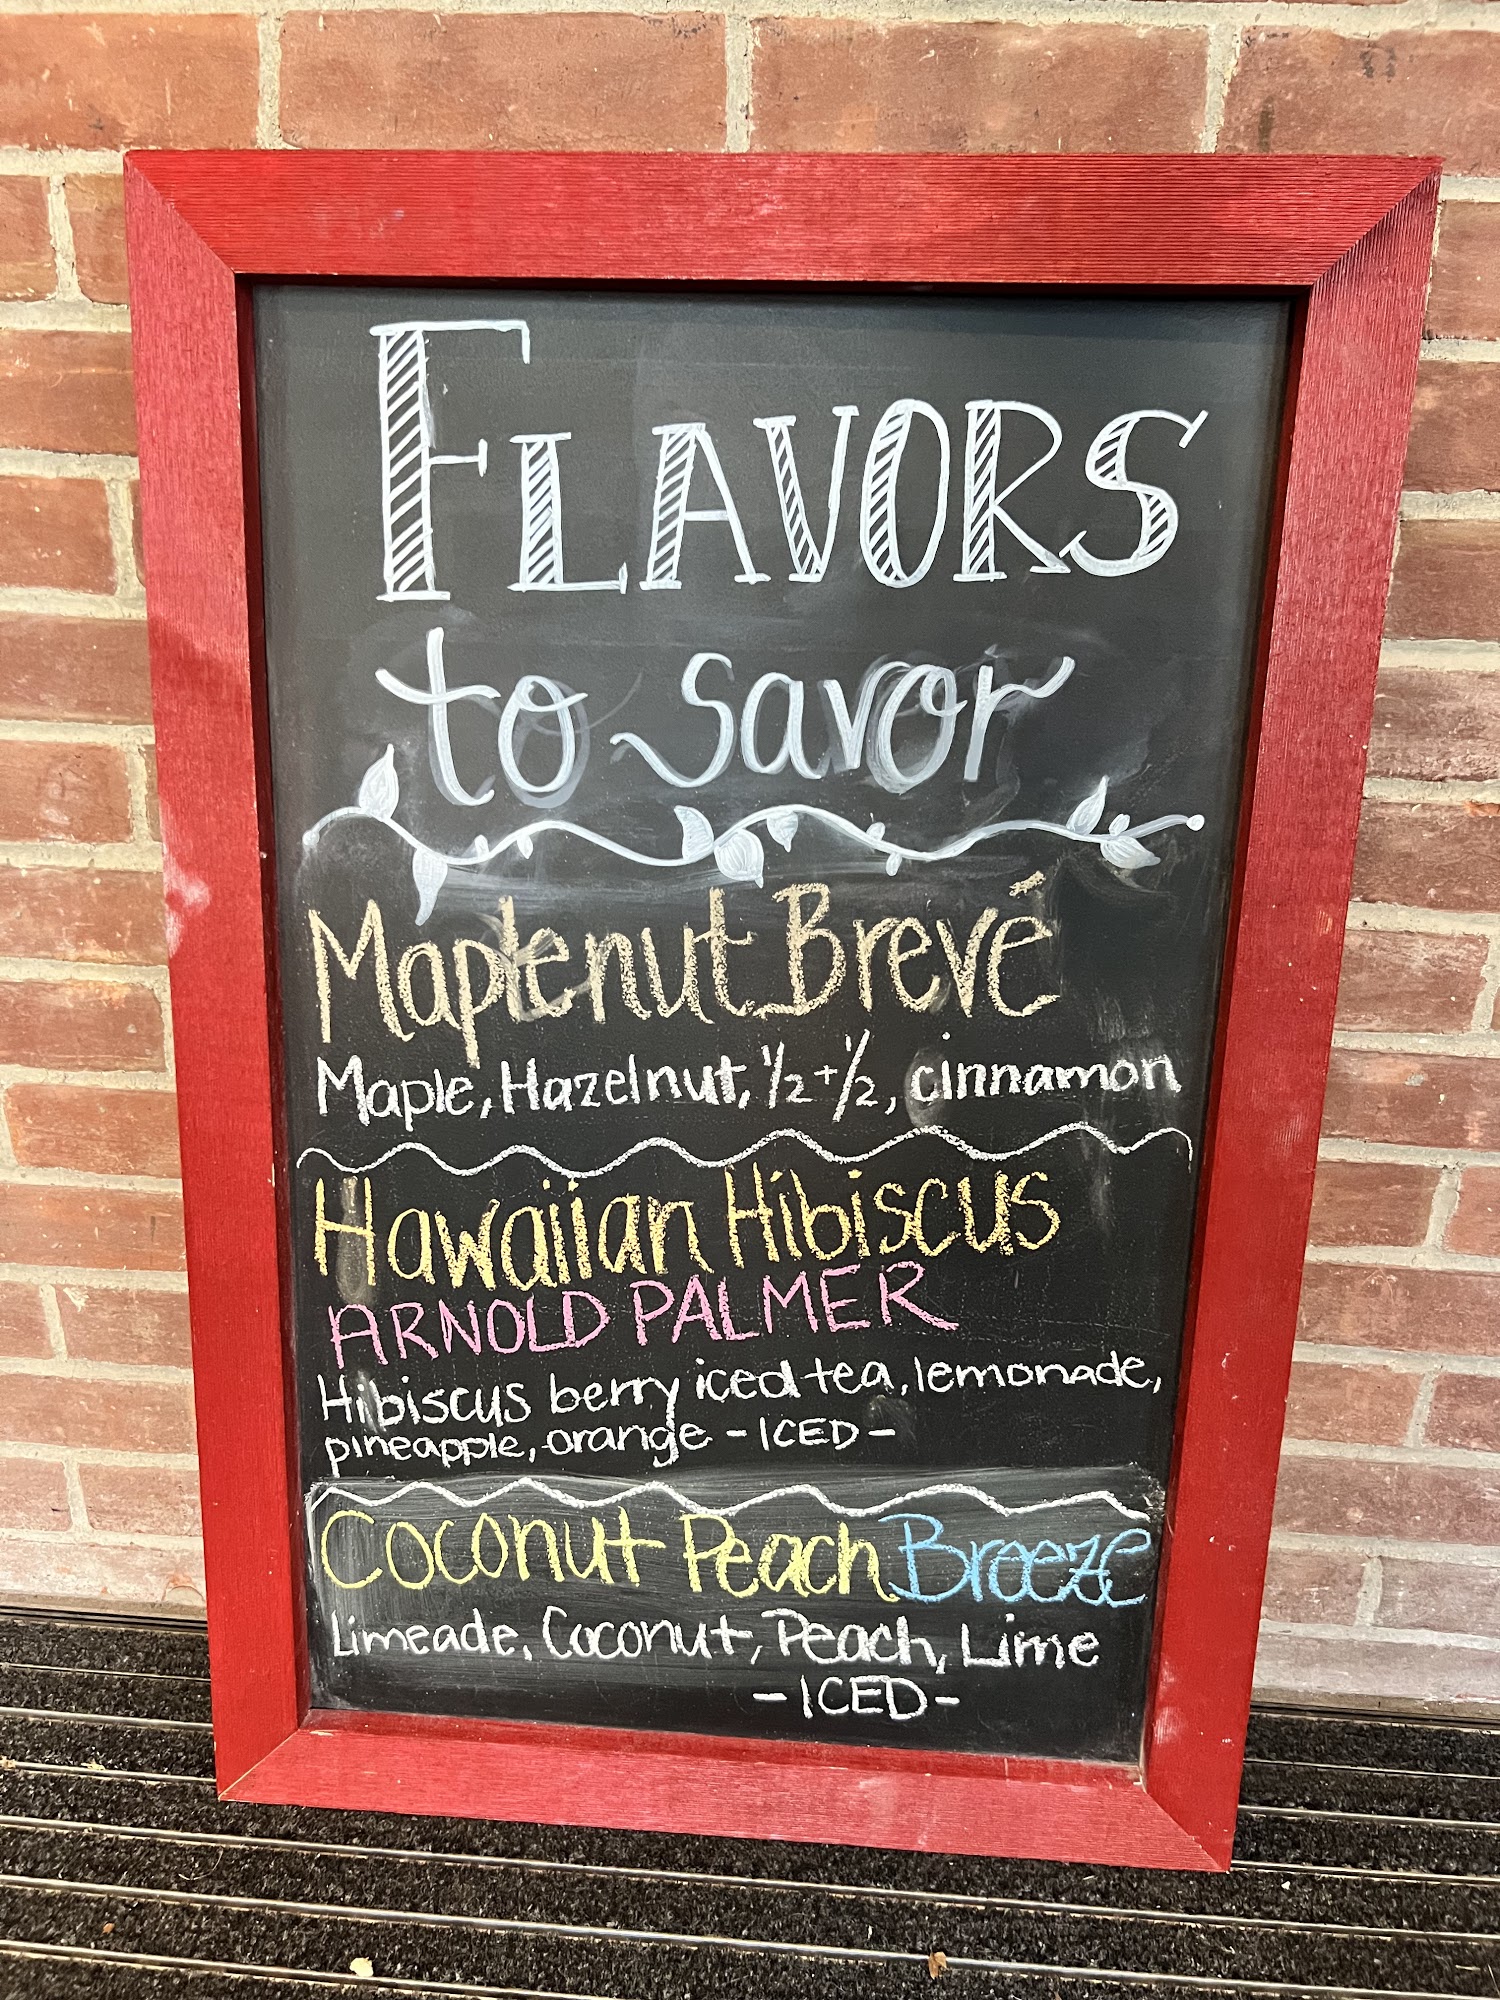 FLAVORS
to savor
Maplenut Brevé
Maple, Hazelnut, ½+½, cinnamon
Hawaiian Hibiscus
ARNOLD PALMER
Hibiscus berry iced tea, lemonade,
pineapple, orange - ICED -
Coconut Peach Breeze
Limeade, Coconut, Peach, Lime
- ICED -